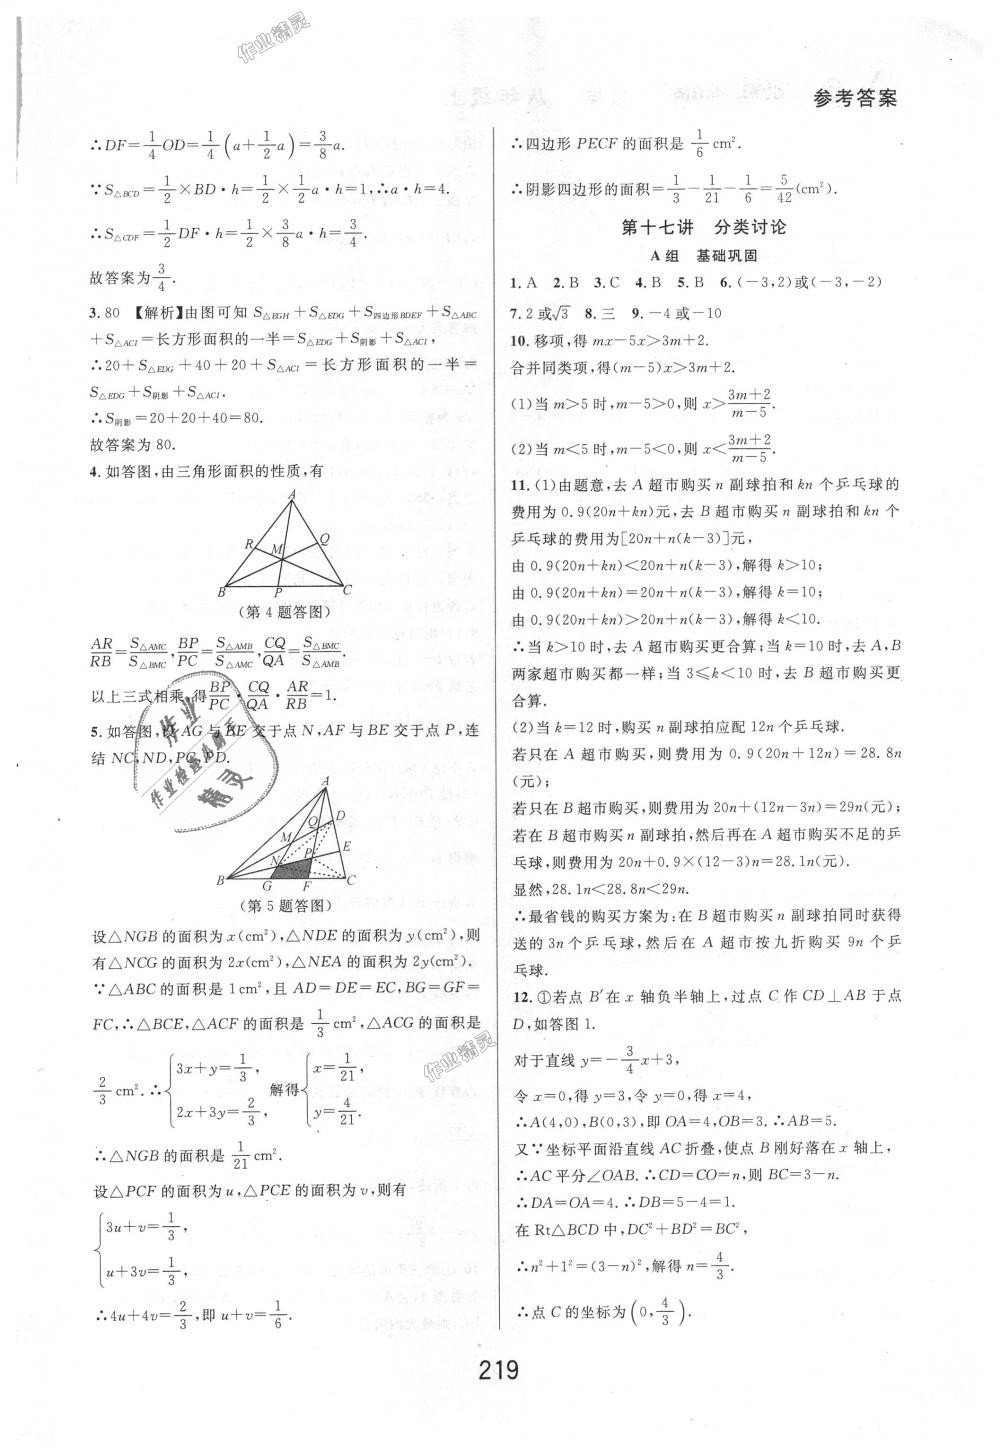 参考答案
∴DF=1/4OD=1/4(a+1/2a)=3/8a.
∵S△BCD=1/2×BD·h=1/2×1/2a·h=1,∴a·h=4.
∴S△CDF=1/2DF·h=1/2×3/8a·h=3/4.
故答案为3/4.
3. 80 【解析】由图可知 S△BGH+S△EDG+S四边形BDEF+S△ABC
+S△ACI=长方形面积的一半=S△EDG+S阴影+S△ACI,
∴20+S△EDG+40+20+S△ACI=长方形面积的一半=
S△EDG+S阴影+S△ACI.
∴S阴影=20+20+40=80.
故答案为 80.
4. 如答图,由三角形面积的性质,有
A
R M Q
B P C
(第 4 题答图)
AR/RB=S△AMC/S△BMC,BP/PC=S△AMB/S△AMC,CQ/QA=S△BMC/S△AMB
以上三式相乘,得BP/PC·CQ/QA·AR/RB=1.
5. 如答图,设 AG 与 BE 交于点 N,AF 与 BE 交于点 P,连
结 NC,ND,PC,PD.
A
Q D
M
N P E
B G F C
(第 5 题答图)
设△NGB 的面积为 x(cm²),△NDE 的面积为 y(cm²),则
有△NCG 的面积为 2x(cm²),△NEA 的面积为 2y(cm²).
∵△ABC 的面积是 1cm²,且 AD=DE=EC,BG=GF=
FC,∴△BCE,△ACF 的面积是 1/3 cm²,△ACG 的面积是
2/3 cm².∴{3x+y=1/3, 2x+3y=2/3, 解得{x=1/21, y=4/21.
∴△NGB 的面积是 1/21 cm².
设△PCF 的面积为 u,△PCE 的面积为 v,则有
{3u+v=1/3,
u+3v=1/3,
∴4u+4v=2/3,即 u+v=1/6.
∴四边形 PECF 的面积是 1/6 cm².
∴阴影四边形的面积=1/3-1/21-1/6=5/42(cm²).
第十七讲 分类讨论
A 组 基础巩固
1. A 2. B 3. C 4. B 5. B 6. (-3,2)或(-3,-2)
7. 2 或√3 8. 三 9. -4 或-10
10. 移项,得 mx-5x>3m+2.
合并同类项,得(m-5)x>3m+2.
(1)当 m>5 时,m-5>0,则 x>3m+2/m-5.
(2)当 m<5 时,m-5<0,则 x<3m+2/m-5.
11. (1)由题意,去 A 超市购买 n 副球拍和 kn 个乒乓球的
费用为 0.9(20n+kn)元,去 B 超市购买 n 副球拍和 kn 个
乒乓球的费用为[20n+n(k-3)]元,
由 0.9(20n+kn)<20n+n(k-3),解得 k>10;
由 0.9(20n+kn)=20n+n(k-3),解得 k=10;
由 0.9(20n+kn)>20n+n(k-3),解得 k<10.
∴当 k>10 时,去 A 超市购买更合算;当 k=10 时,去 A,B
两家超市购买都一样;当 3≤k<10 时,去 B 超市购买更
合算.
(2)当 k=12 时,购买 n 副球拍应配 12n 个乒乓球.
若只在 A 超市购买,则费用为 0.9(20n+12n)=28.8n
(元);
若只在 B 超市购买,则费用为 20n+(12n-3n)=29n(元);
若在 B 超市购买 n 副球拍,然后再在 A 超市购买不足的乒
乓球,则费用为 20n+0.9×(12-3)n=28.1n(元).
显然,28.1n<28.8n<29n.
∴最省钱的购买方案为:在 B 超市购买 n 副球拍同时获得
送的 3n 个乒乓球,然后在 A 超市按九折购买 9n 个乒
乓球.
12. ①若点 B′在 x 轴负半轴上,过点 C 作 CD⊥AB 于点
D,如答图 1.
对于直线 y=-3/4x+3,
令 x=0,得 y=3,令 y=0,得 x=4,
∴A(4,0),B(0,3),即 OA=4,OB=3.∴AB=5.
又∵坐标平面沿直线 AC 折叠,使点 B 刚好落在 x 轴上,
∴AC 平分∠OAB.∴CD=CO=n,则 BC=3-n.
∴DA=OA=4.∴DB=5-4=1.
在 Rt△BCD 中,DC²+BD²=BC²,
∴n²+1²=(3-n)²,解得 n=4/3.
∴点 C 的坐标为(0,4/3).
219
作业精灵
作业精灵
作业
作业检查小助手
精灵